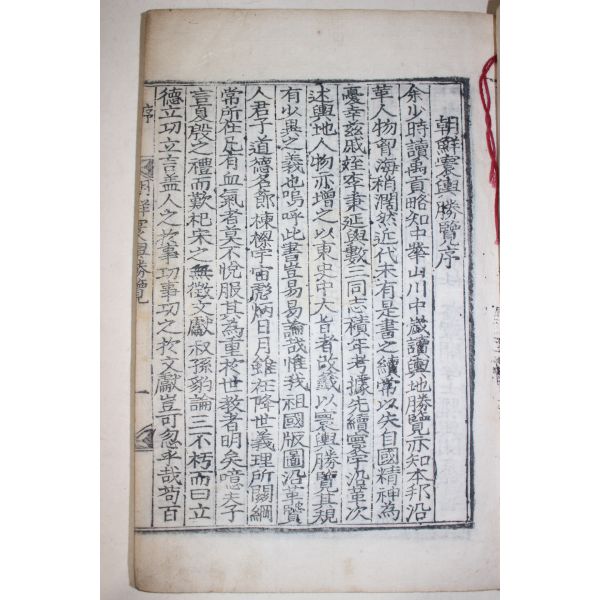 朝鮮寰輿勝覽序
余少時讀禹貢略知中華山川中歲讀輿地勝覽亦知本邦沿
華人物智海稍濶然近代未有是書之續常以失自國精神為
憂幸玆戚姪李秉延與數三同志積年考據先續寰宇沿革次
述輿地人物亦增之以東史中大旨者改籤以寰輿勝覽其規
有少異之義也嗚呼此書豈易易論哉惟我祖國版圖沿革賢
人君子道德名節棟樑宇宙彪炳日月雖在降世義理所關綱
常所在凡有血氣者莫不悅服其為重於世教者明矣噫夫子
言夏殷之禮而歎杞宋之無徵文獻叔孫豹論三不朽而曰立
德立功立言盖人之於事功事功之於文獻豈可忽乎哉苟百
序
朝鮮寰輿勝覽
一